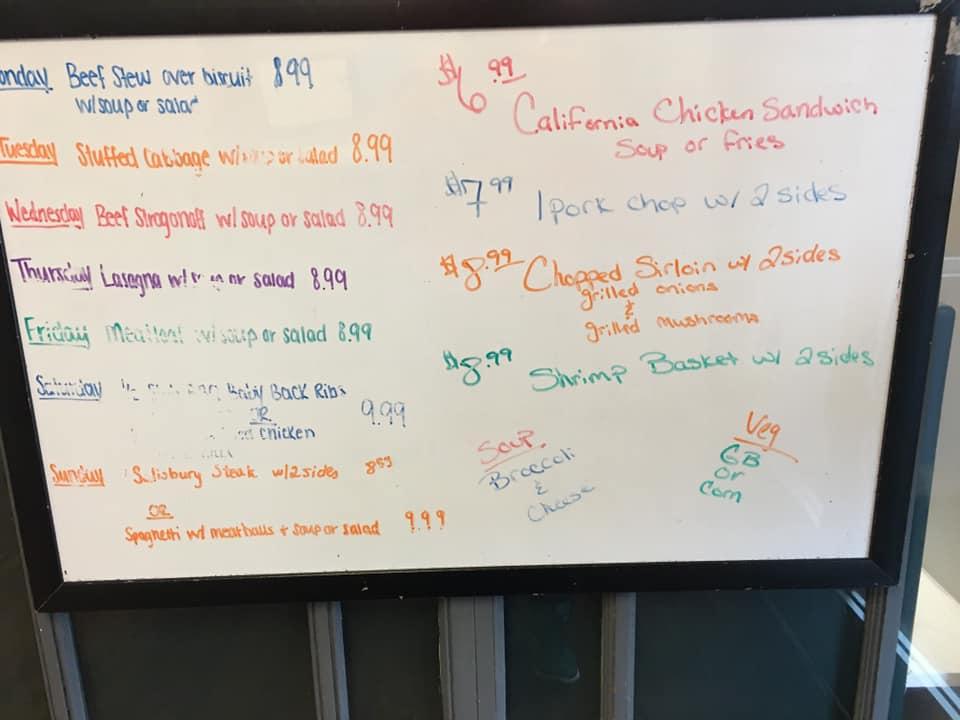 onday Beef Stew over biscuit 8.99
w/soup or salad
Tuesday Stuffed Cabbage w/ or salad 8.99
Wednesday Beef Stroganoff w/ soup or salad 8.99
Thursday Lasagna w/ or salad 8.99
Friday Meatloaf w/soup or salad 8.99
Saturday Baby Back Ribs 9.99
OR
chicken
Sunday Salisbury Steak w/2 sides 8.99
OR
Spaghetti w/ meatballs + soup or salad 9.99
$6.99
California Chicken Sandwich
Soup or fries
$7.99 1 pork chop w/ 2 sides
$8.99 Chopped Sirloin w/ 2 sides
grilled onions
&
grilled mushrooms
$8.99 Shrimp Basket w/ 2 sides
Soup.
Broccoli
&
Cheese
Veg
GB
or
Corn